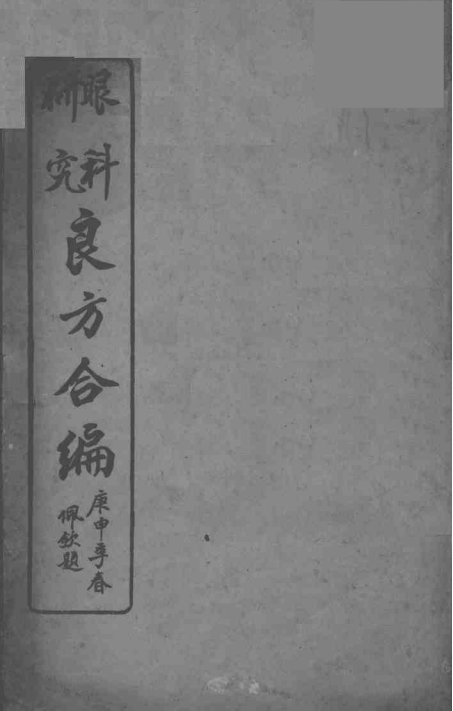 眼科
研究
良方合編
庚申季春
佩欽題